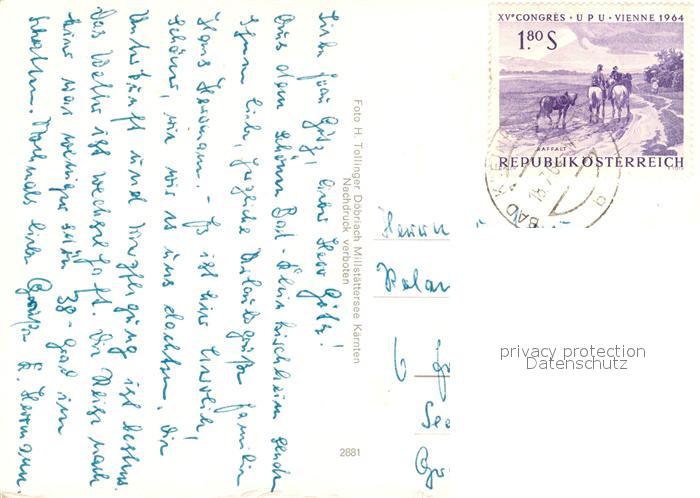 Liebe Frau Götz, lieber Herr Götz!
Aus dem schönen Bad-Kleinkirchheim senden
Ihnen liebe, herzliche Urlaubsgrüße Familie
Hans Herrmann. - Es ist hier herrlich,
schöner, wie wir es uns dachten. Die
Unterkunft und Verpflegung ist bestens.
Das Wetter ist wechselhaft. Die Reise nach
hier war weniger schön 38-Grad im
Schatten. Nochmals liebe Grüße E. Herrmann.
Foto H. Tollinger Döbriach Millstättersee Kärnten
Nachdruck verboten
2881
XVe CONGRÈS · UPU · VIENNE 1964
1.80 S
RAFFALT
REPUBLIK ÖSTERREICH
BAD
Herrn
6
privacy protection
Datenschutz